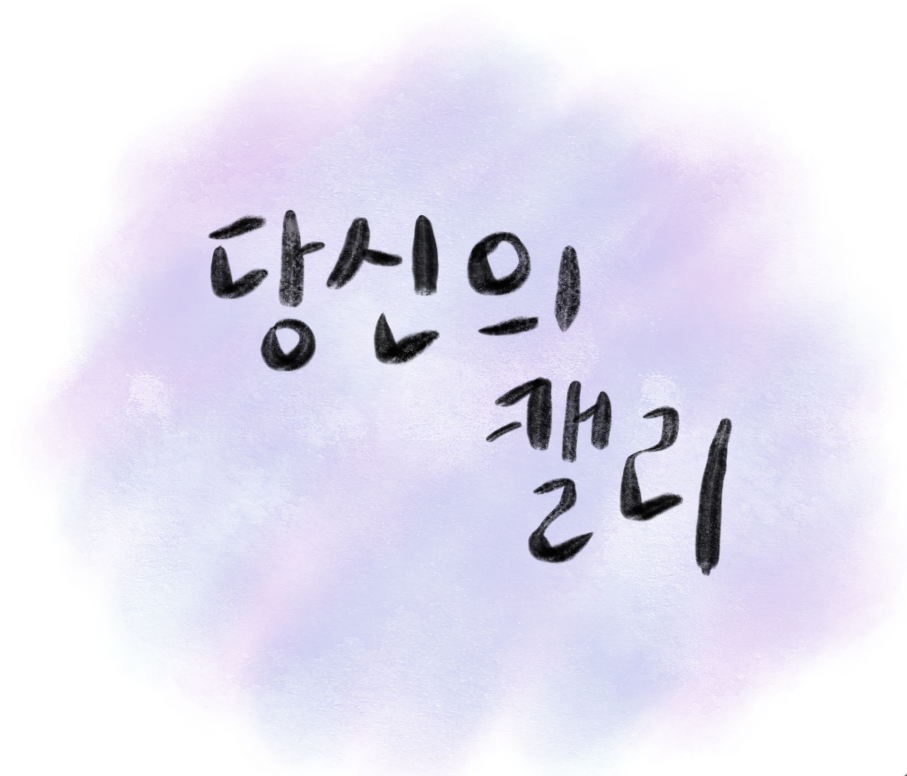 당신의
캘리